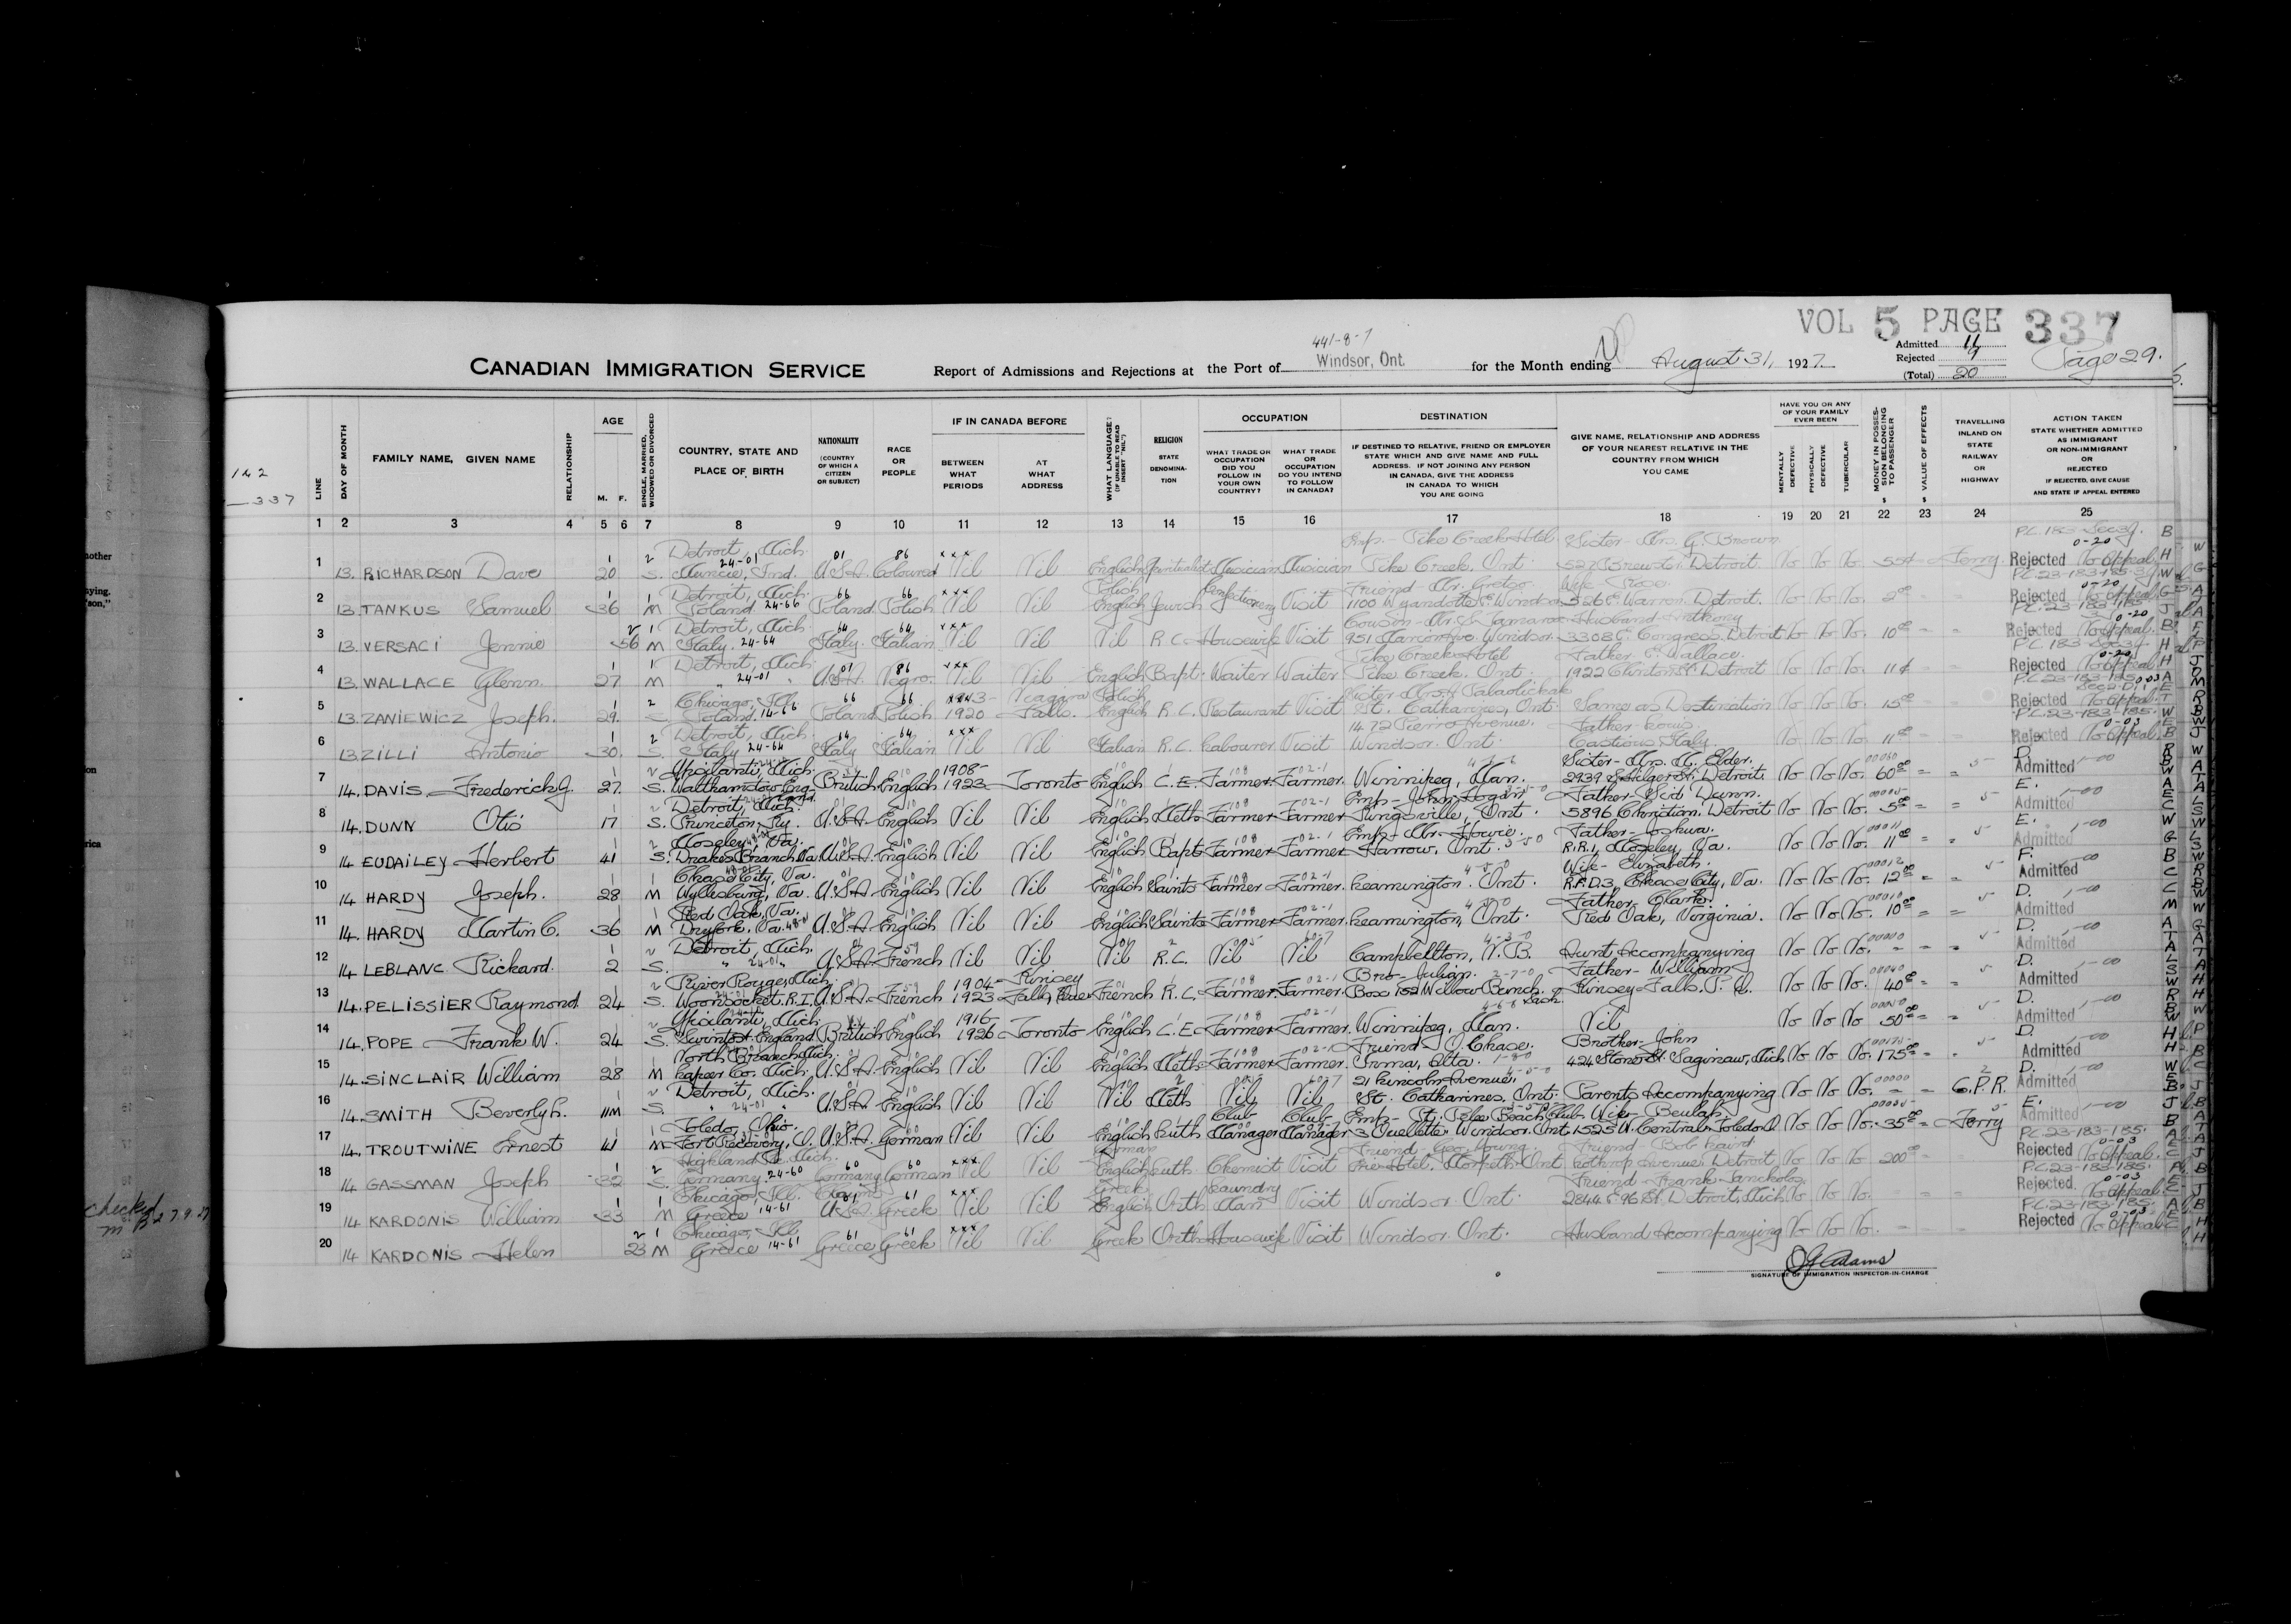 VOL 5 PAGE 337
441-8-7
CANADIAN IMMIGRATION SERVICE
Report of Admissions and Rejections at the Port of Windsor, Ont. for the Month ending August 31, 1927
Admitted 11
Rejected 9
(Total) 20
Page 29.
142
337
LINE
DAY OF MONTH
FAMILY NAME, GIVEN NAME
RELATIONSHIP
AGE
M. F.
SINGLE, MARRIED, WIDOWED OR DIVORCED
COUNTRY, STATE AND PLACE OF BIRTH
NATIONALITY (COUNTRY OF WHICH A CITIZEN OR SUBJECT)
RACE OR PEOPLE
IF IN CANADA BEFORE
BETWEEN WHAT PERIODS
AT WHAT ADDRESS
WHAT LANGUAGE? (IF UNABLE TO READ INSERT "NIL")
RELIGION STATE DENOMINATION
OCCUPATION
WHAT TRADE OR OCCUPATION DID YOU FOLLOW IN YOUR OWN COUNTRY?
WHAT TRADE OR OCCUPATION DO YOU INTEND TO FOLLOW IN CANADA?
DESTINATION
IF DESTINED TO RELATIVE, FRIEND OR EMPLOYER STATE WHICH AND GIVE NAME AND FULL ADDRESS. IF NOT JOINING ANY PERSON IN CANADA, GIVE THE ADDRESS IN CANADA TO WHICH YOU ARE GOING
GIVE NAME, RELATIONSHIP AND ADDRESS OF YOUR NEAREST RELATIVE IN THE COUNTRY FROM WHICH YOU CAME
HAVE YOU OR ANY OF YOUR FAMILY EVER BEEN
MENTALLY DEFECTIVE
PHYSICALLY DEFECTIVE
TUBERCULAR
MONEY IN POSSESSION BELONGING TO PASSENGER $
VALUE OF EFFECTS $
TRAVELLING INLAND ON STATE RAILWAY OR HIGHWAY
ACTION TAKEN STATE WHETHER ADMITTED AS IMMIGRANT OR NON-IMMIGRANT OR REJECTED IF REJECTED, GIVE CAUSE AND STATE IF APPEAL ENTERED
1 2 3 4 5 6 7 8 9 10 11 12 13 14 15 16 17 18 19 20 21 22 23 24 25
Detroit, Mich. Emp- Pike Creek Hotel. Sister- Mrs. G. Brown P.C. 183-Sec 3J.
1 13. RICHARDSON Dave 20 S. Muncie, Ind. U.S.A. Coloured Nil Nil English Spiritualist Musician Musician Pike Creek. Ont. 527 Brewster Detroit. No No No. 55¢ - Ferry Rejected No Appeal
Detroit, Mich. Polish Friend- Mr. Gretzo Wife- Rose P.C. 23-183-185-3J
2 13. TANKUS Samuel 36 M Poland 24-66 Poland Polish Nil Nil English Jewish Confectionery Visit 1100 Wyandotte E. Windsor 526 E. Warren. Detroit. No No No. 2.00 Rejected No Appeal
Detroit, Mich. Husband- Anthony P.C. 23-183-185
3 13. VERSACI Jennie 56 M Italy. 24-64 Italy. Italian Nil Nil Nil R.C. Housewife Visit 951 Windsor. 3308 E. Congress, Detroit No No No. 10.00 Rejected No Appeal
Detroit, Mich. Pike Creek Hotel Father- Wallace. P.C. 183-Sec 3J
4 13. WALLACE Glenn. 27 M " 24-01 " U.S.A. Negro. Nil Nil English Bapt. Waiter Waiter Pike Creek. Ont. 1922 Clinton St. Detroit No No No. 11¢ Rejected No Appeal
Chicago, Ill. 1913- Niagara Polish P.C. 23-183-185
5 13. ZANIEWICZ Joseph. 29. S Poland. 14-66 Poland Polish 1920 Falls. English R.C. Restaurant Visit St. Catharines, Ont. Same as Destination No No No. 15.00 Rejected No Appeal
Detroit, Mich. 1472 Pierre Avenue. Father- Louis. P.C. 23-183-185.
6 13 ZILLI Antonio 30. S. Italy 24-64 Italy Italian Nil Nil Italian R.C. Labourer Visit Windsor. Ont. Italy No No No. 11.00 Rejected No Appeal
Ypsilanti, Mich. 1908- Sister- Mrs. A. Elder. D.
7 14. DAVIS Frederick J. 27. S. Walthamstow, Eng. British English 1923 Toronto English C.E. Farmer Farmer. Winnipeg, Man. 2939 Detroit. No No No. 60.00 Admitted
Detroit, Mich. Emp- John Hogan Father- Sid Dunn. E.
8 14. DUNN Otis 17 S. Princeton, Ky. U.S.A. English Nil Nil English Meth Farmer Farmer Kingsville, Ont. 5896 Christian, Detroit No No No. 5.00 Admitted
Moseley, Va. Emp- Mr. Howie. Father- Joshua. E.
9 14 EUDAILEY Herbert 41 S. Drakes Branch Va. U.S.A. English Nil Nil English Bapt Farmer Farmer Harrow, Ont. R.R.1, Moseley, Va. No No No. 11.00 Admitted
Chase City, Va. Wife- Elizabeth. F.
10 14 HARDY Joseph. 28 M Wyllesburg, Va. U.S.A. English Nil Nil English Saints Farmer Farmer. Leamington. Ont. R.F.D.3, Chase City, Va. No No No. 12.00 Admitted
Red Oak, Va. Father- Clark. D.
11 14. HARDY Martin C. 36 M Dryfork. Va. U.S.A. English Nil Nil English Saints Farmer Farmer. Leamington, Ont. Red Oak, Virginia. No No No. 10.00 Admitted
Detroit, Mich. D.
12 14 LEBLANC Rickard. 2 S. " 24-01 " U.S.A. French Nil Nil Nil R.C. Nil Nil Campbellton, N.B. Aunt Accompanying No No No. Admitted
River Rouge, Mich. 1904- Kinsey Bro- Julian. Father- William D.
13 14. PELISSIER Raymond 24 S. Woonsocket, R.I. U.S.A. French 1923 Falls, Quebec French R.C. Farmer. Farmer. Box 152 Willow Bunch. Sask. Kinsey Falls. P.Q. No No No. 40.00 Admitted
Ypsilanti, Mich. 1916- D.
14 14. POPE Frank W. 24 S. England British English 1926 Toronto English C.E. Farmer Farmer. Winnipeg, Man. Nil No No No 50.00 Admitted
North Branch Mich. Friend J. Chase. Brother- John D.
15 14. SINCLAIR William 28 M Lapeer Co. Mich. U.S.A. English Nil Nil English Meth Farmer Farmer Irma, Alta. 424 Stone St. Saginaw, Mich No No No. 175.00 Admitted
Detroit, Mich. 21 Lincoln Avenue, D.
16 14. SMITH Beverly L. 11M S. " 24-01 " U.S.A. English Nil Nil Nil Meth Nil Nil St. Catharines, Ont. Parents Accompanying No No No. C.P.R. Admitted
Toledo, Ohio. Club Club Emp- St. Beach Club Wife- Beulah. E.
17 14. TROUTWINE Ernest 41 M Fort Recovery, O. U.S.A. German Nil Nil English Luth Manager Manager 3 Ouellette. Windsor. Ont. 1525 W. Central. Toledo O No No No. 35.00 Ferry Admitted
Highland Pk. Mich. German Friend- Geo. Young. Friend Bob Laird P.C. 23-183-185.
18 14 GASSMAN Joseph 32 S. Germany. 24-60 Germany German Nil Nil English Luth. Chemist Visit Hotel. Morpeth. Ont Lothrop Avenue, Detroit No No No 200.00 Rejected No Appeal
Chicago, Ill. Greek Laundry Friend- Frank P.C. 23-183-185.
19 14 KARDONIS William 33 M Greece 14-61 U.S.A. Greek Nil Nil English Orth Man Visit Windsor Ont. 2844 E 96 St. Detroit, Mich No No No. Rejected No Appeal
Chicago, Ill. P.C. 23-183-185.
20 14 KARDONIS Helen 23 M Greece 14-61 Greece Greek Nil Nil Greek Orth Housewife Visit Windsor. Ont. Husband Accompanying No No No. Rejected No Appeal
checked
Adams
SIGNATURE OF IMMIGRATION INSPECTOR-IN-CHARGE